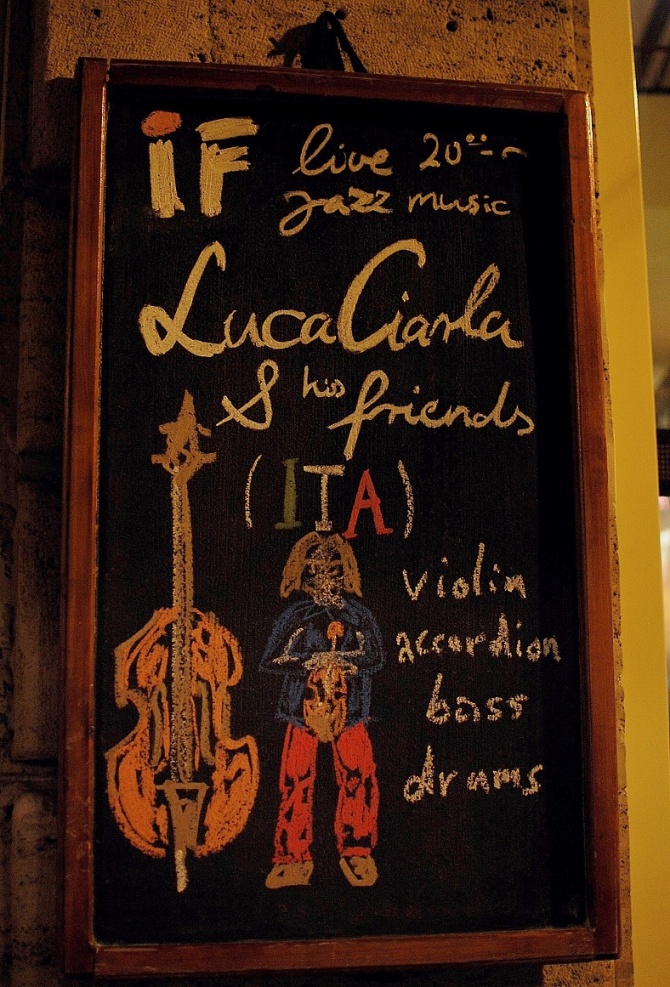 iF live 20:00-
jazz music
Luca Ciarla
& his friends
(ITA)
violin
accordion
bass
drums